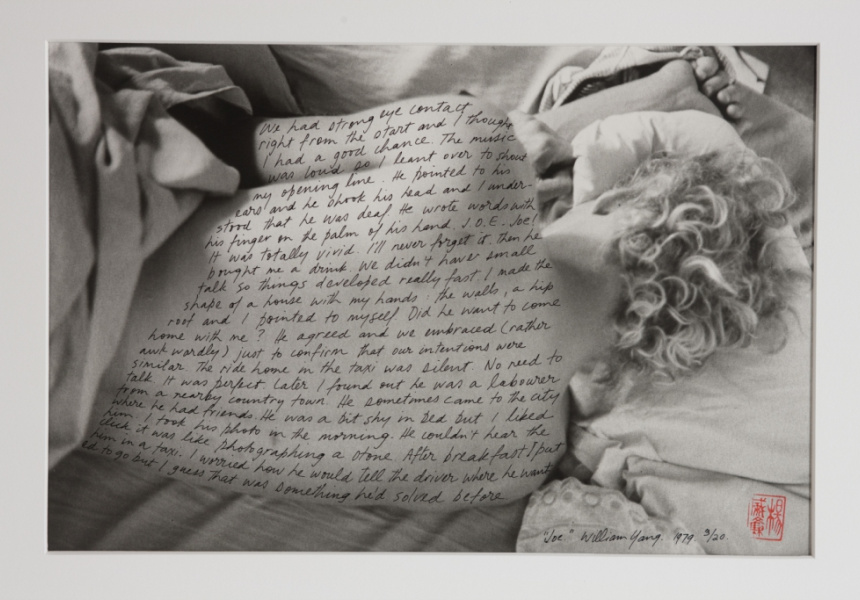 We had strong eye contact
right from the start and I thought
I had a good chance. The music
was loud so I leant over to shout
my opening line. He pointed to his
ears and he shook his head and I under-
stood that he was deaf. He wrote words with
his finger on the palm of his hand. J.O.E. Joe!
It was totally vivid. I'll never forget it. then he
bought me a drink. We didn't have small
talk so things developed really fast. I made the
shape of a house with my hands: the walls, a hip
roof and I pointed to myself. Did he want to come
home with me? He agreed and we embraced (rather
awkwardly) just to confirm that our intentions were
similar. The ride home in the taxi was silent. No need to
talk. It was perfect. Later I found out he was a labourer
from a nearby country town. He sometimes came to the city
where he had friends. He was a bit shy in bed but I liked
him. I took his photo in the morning. He couldn't hear the
click it was like photographing a stone. After breakfast I put
him in a taxi. I worried how he would tell the driver where he want-
ed to go but I guess that was something he'd solved before
"Joe" William Yang. 1979. 9/20.
楊